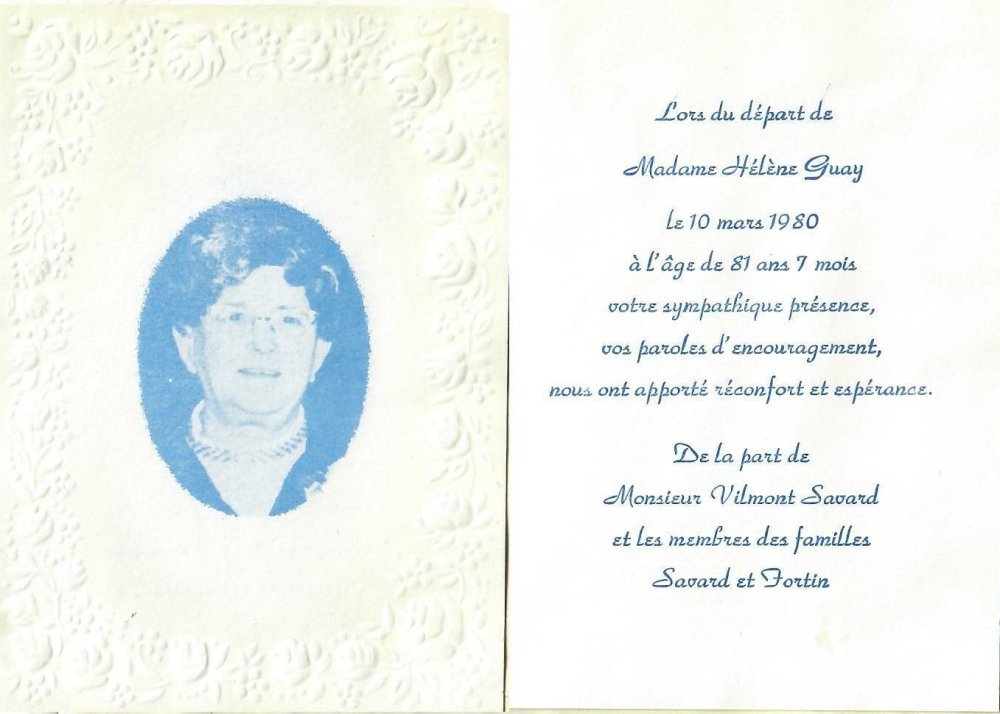 Lors du départ de
Madame Hélène Guay
le 10 mars 1980
à l'âge de 81 ans 7 mois
votre sympathique présence,
vos paroles d'encouragement,
nous ont apporté réconfort et espérance.
De la part de
Monsieur Vilmont Savard
et les membres des familles
Savard et Fortin